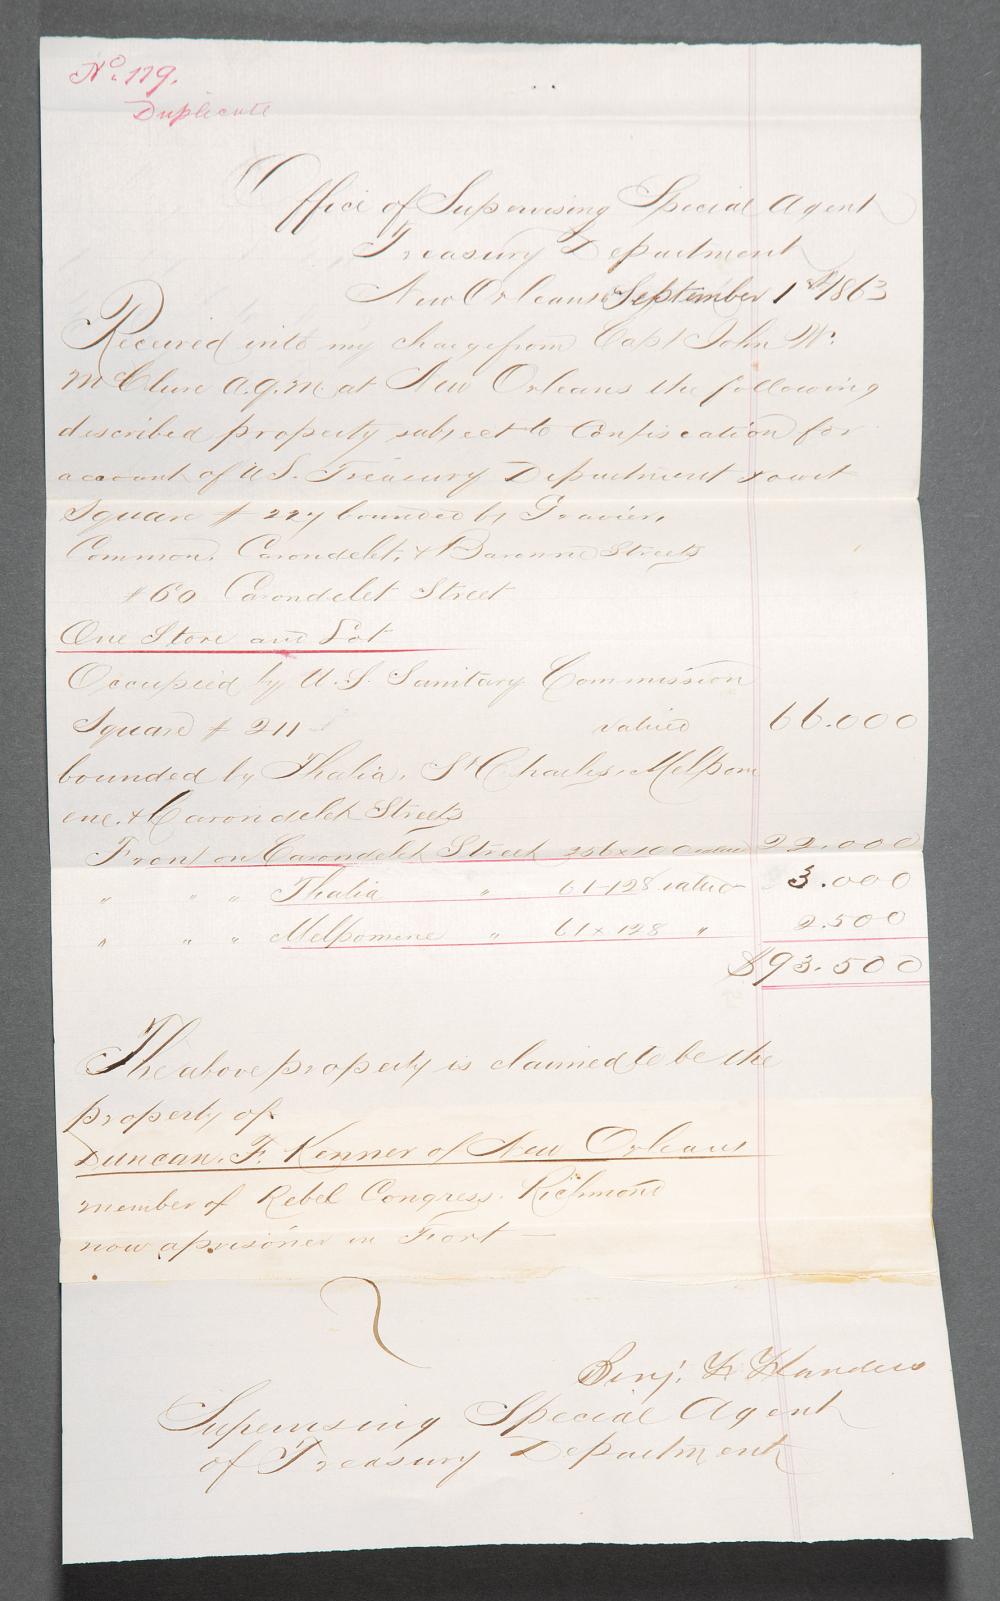 No. 179.
Duplicate
Office of Supervising Special Agent
Treasury Department
New Orleans September 1st 1863
Received into my charge from Capt John W.
McClure A.Q.M. at New Orleans the following
described property subject to Confiscation for
account of U.S. Treasury Department to wit
Square # 227 bounded by Gravier,
Common, Carondelet, & Baronne Streets
#60 Carondelet Street
One Store and Lot
Occupied by U.S. Sanitary Commission
Square # 211 valued 66.000
bounded by Thalia, St Charles, Melpom
ene, & Carondelet Streets
Front on Carondelet Street 256x100 22.000
" " " Thalia " 61-128 value 3.000
" " " Melpomene " 61x128 " 2.500
$93.500
The above property is claimed to be the
property of
Duncan. F. Kenner of New Orleans
member of Rebel Congress. Richmond
now a prisoner in Fort —
Benj. F. Flanders
Supervising Special Agent
of Treasury Department